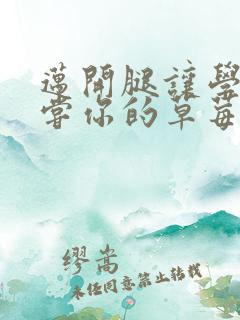 邁開腿讓學
嘗你的草莓
繆嵩
未任同意禁止轉載